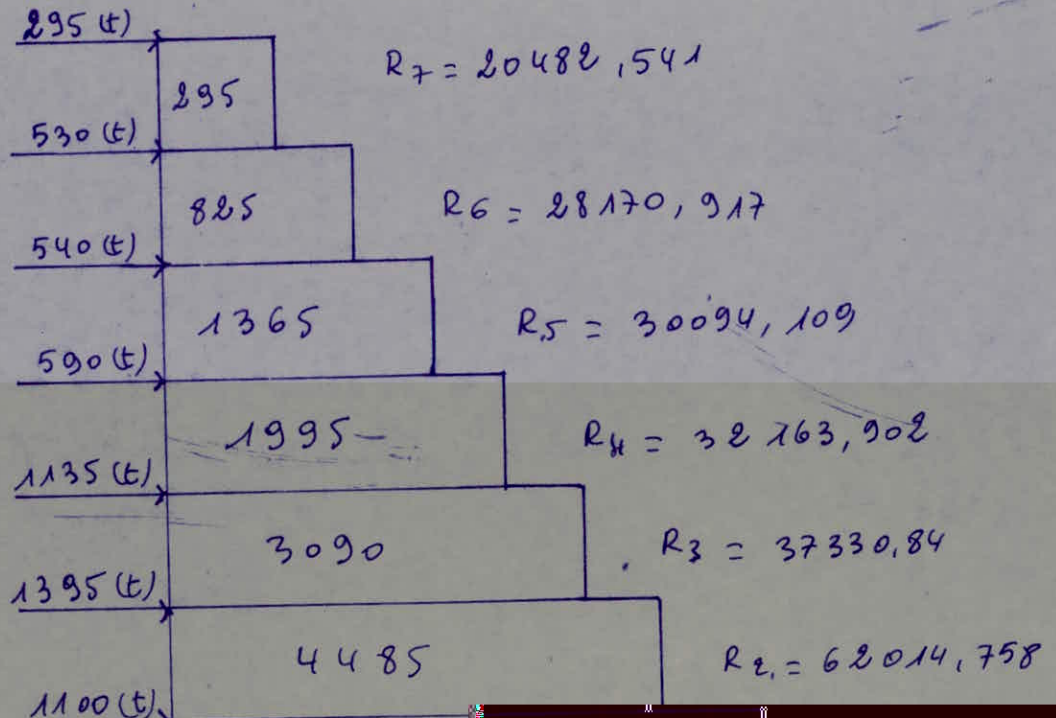 295 (t)
R7 = 20482,541
295
530 (t)
825
R6 = 28170,917
540 (t)
1365
R5 = 30094,109
590 (t)
1995
R4 = 32163,902
1135 (t)
3090
R3 = 37330,84
1395 (t)
4485
R2 = 62014,758
1100 (t)